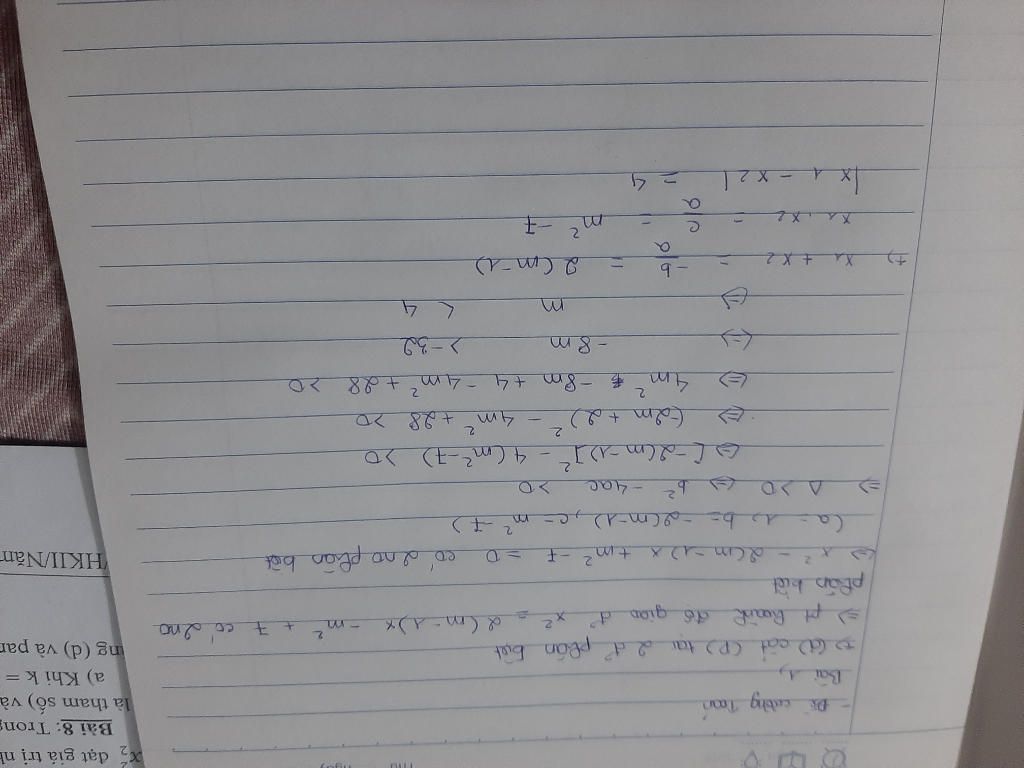 Thứ ngày
- Đề cương Toán
Bài 1,
+) (d) cắt (P) tại 2 đ' phân biệt
=> pt hoành độ giao đ' x² = 2(m-1)x - m² + 7 có 2 no
phân biệt
<=> x² - 2(m-1)x + m² - 7 = 0 có 2 no phân biệt
(a = 1, b = -2(m-1), c = m² - 7)
=> Δ > 0 <=> b² - 4ac > 0
<=> [-2(m-1)]² - 4(m² - 7) > 0
<=> (-2m + 2)² - 4m² + 28 > 0
<=> 4m² - 8m + 4 - 4m² + 28 > 0
<=> -8m > -32
<=> m < 4
+) x1 + x2 = -b/a = 2(m-1)
x1 . x2 = c/a = m² - 7
|x1 - x2| = 4
x₂² đạt giá trị nh
Bài 8: Tron
là tham số) và
a) Khi k =
ng (d) và par
/HKII/Năm